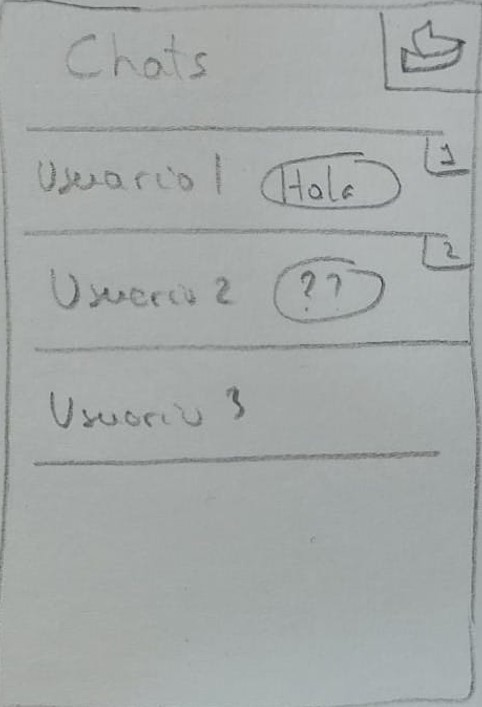 Chats
1
Usuario 1 Hola
2
Usuario 2 ??
Usuario 3